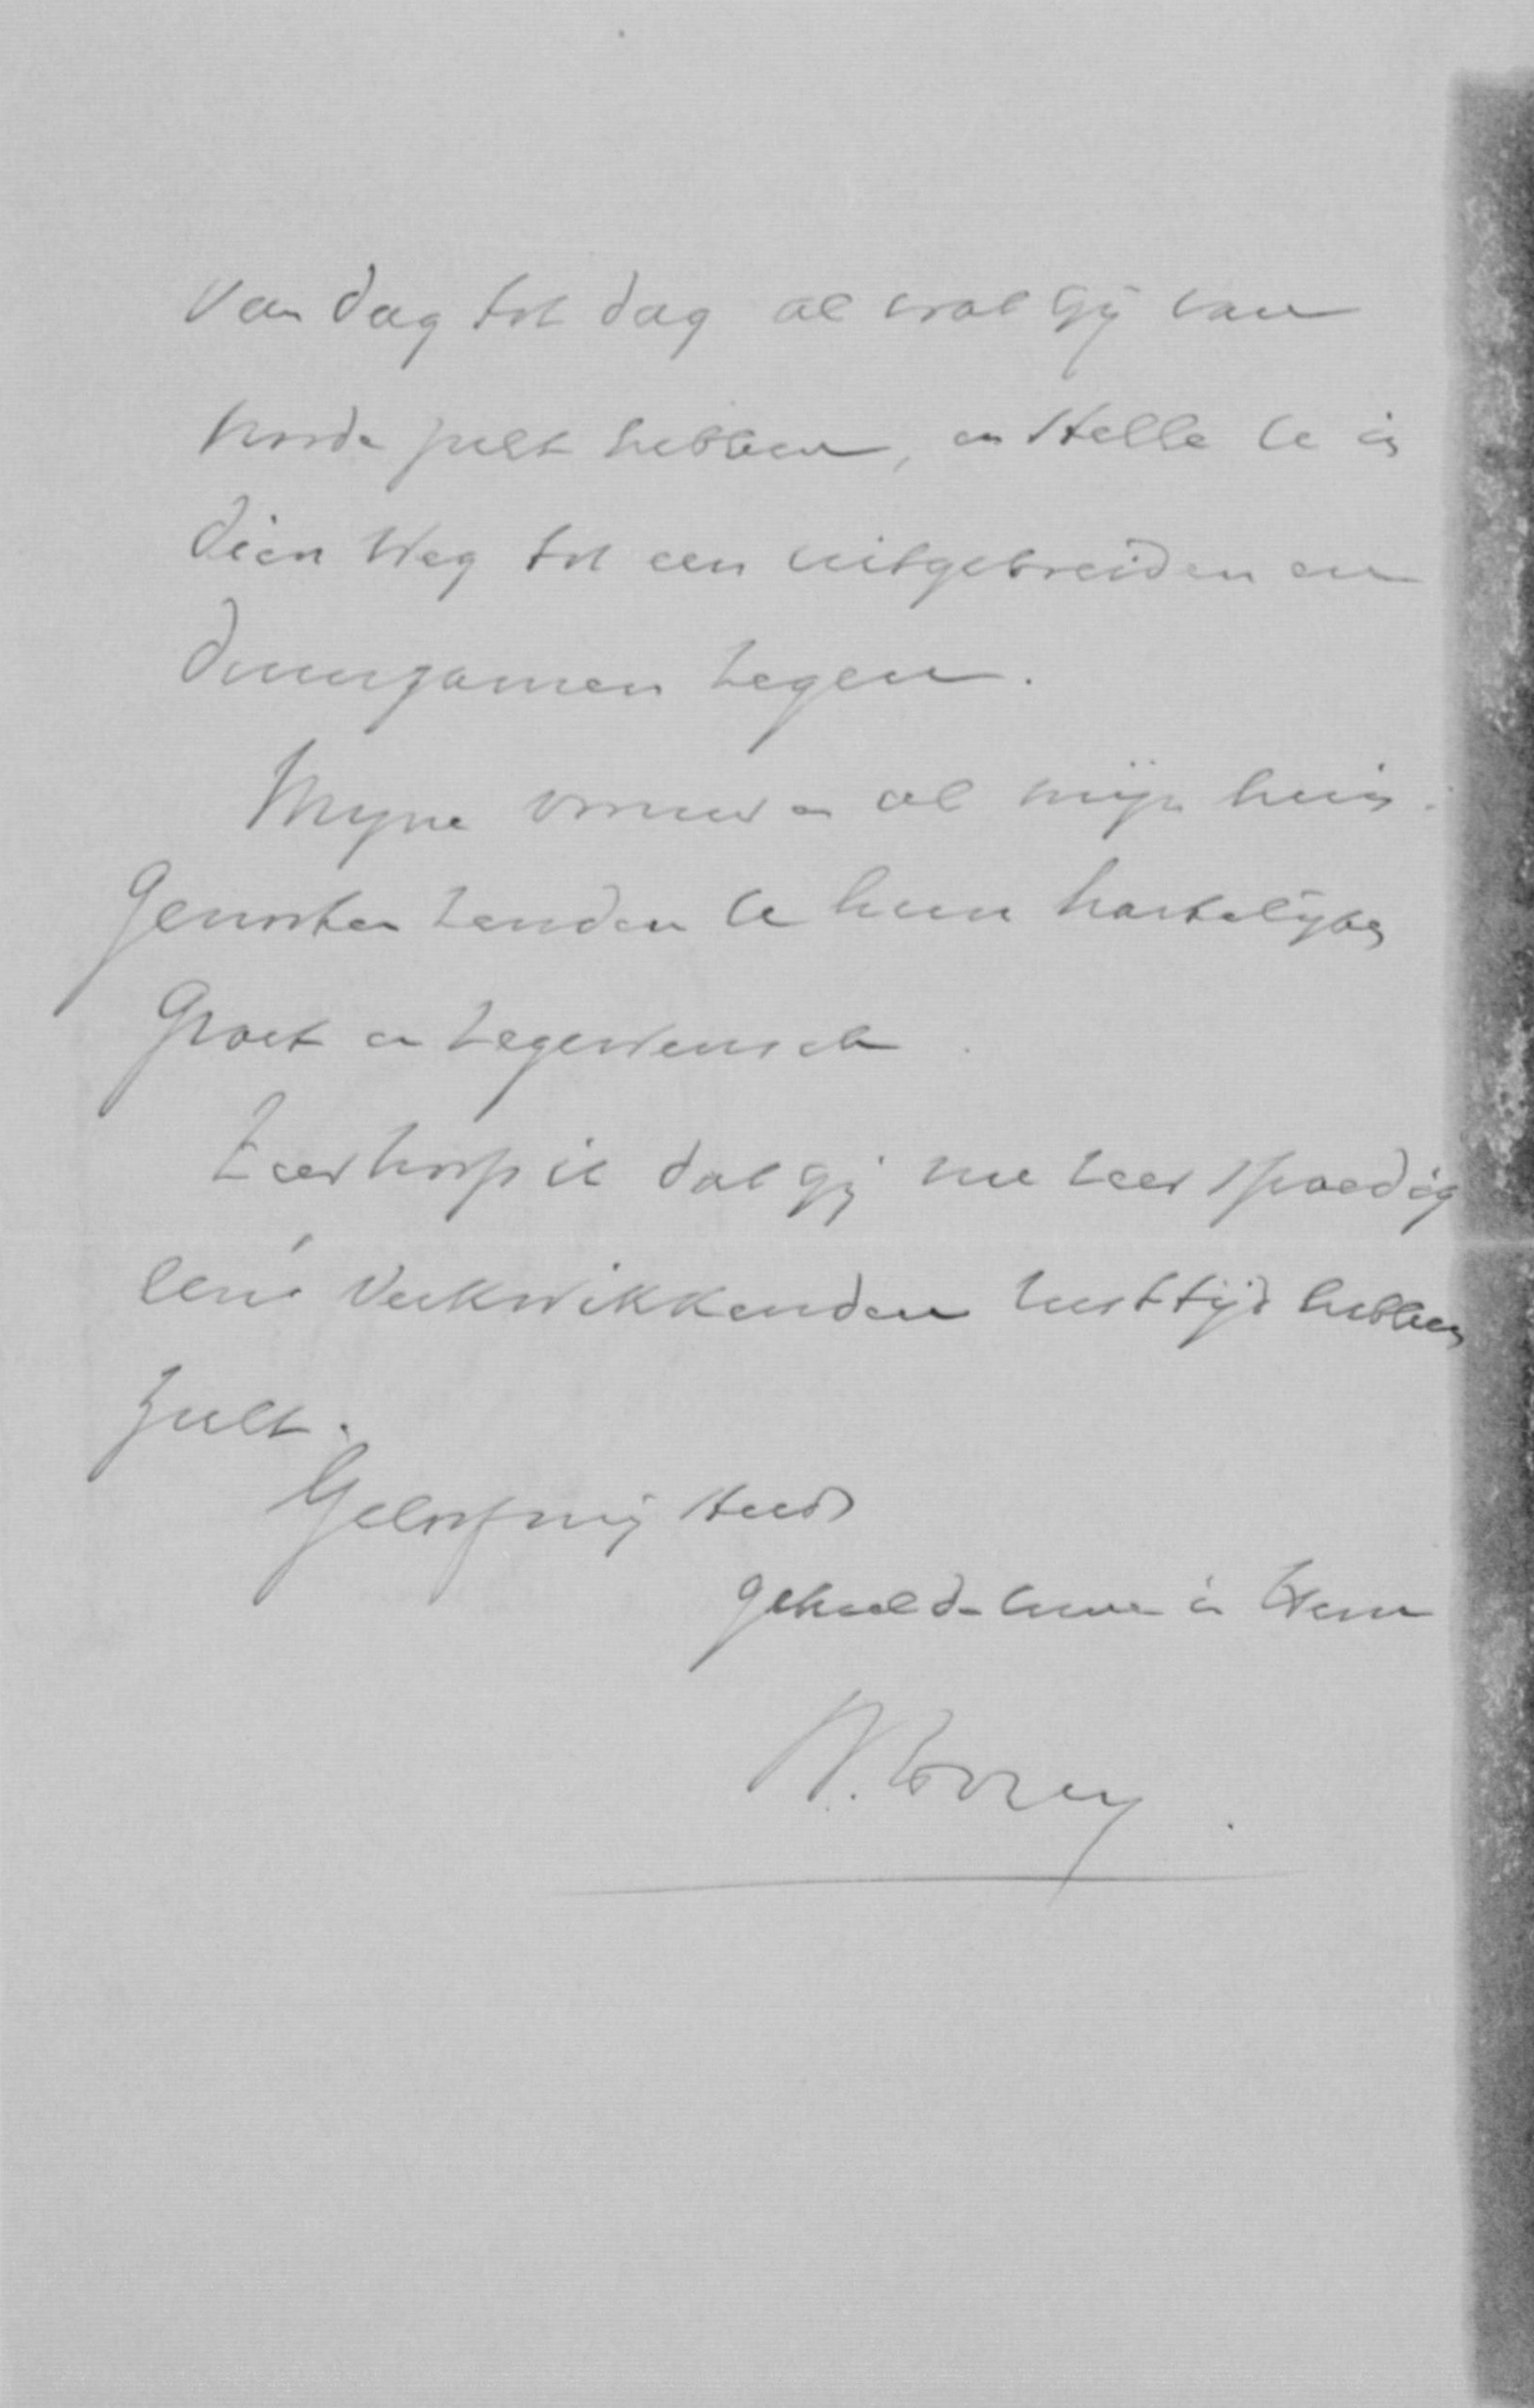 van dag tot dag al wat gij van
noode zult hebben, en stelle U in
dien weg tot een uitgebreiden en
duurzamen zegen.
Myne vrouw en al mijn huis-
genooten zenden U hun hartelijken
groet en zegenwensch.
Zeer hoop ik dat gij nu zeer spoedig
een verkwikkenden rusttijd hebben
zult.
Geloof mij steeds
geheel de Uwe in Hem